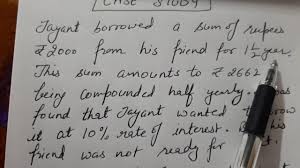 CASE STUDY
Jayant borrowed a sum of rupees
₹2000 from his friend for 1 1/2 year.
This sum amounts to ₹2662
being compounded half yearly.
found that Jayant wanted to
it at 10% rate of interest. his
friend was not ready for